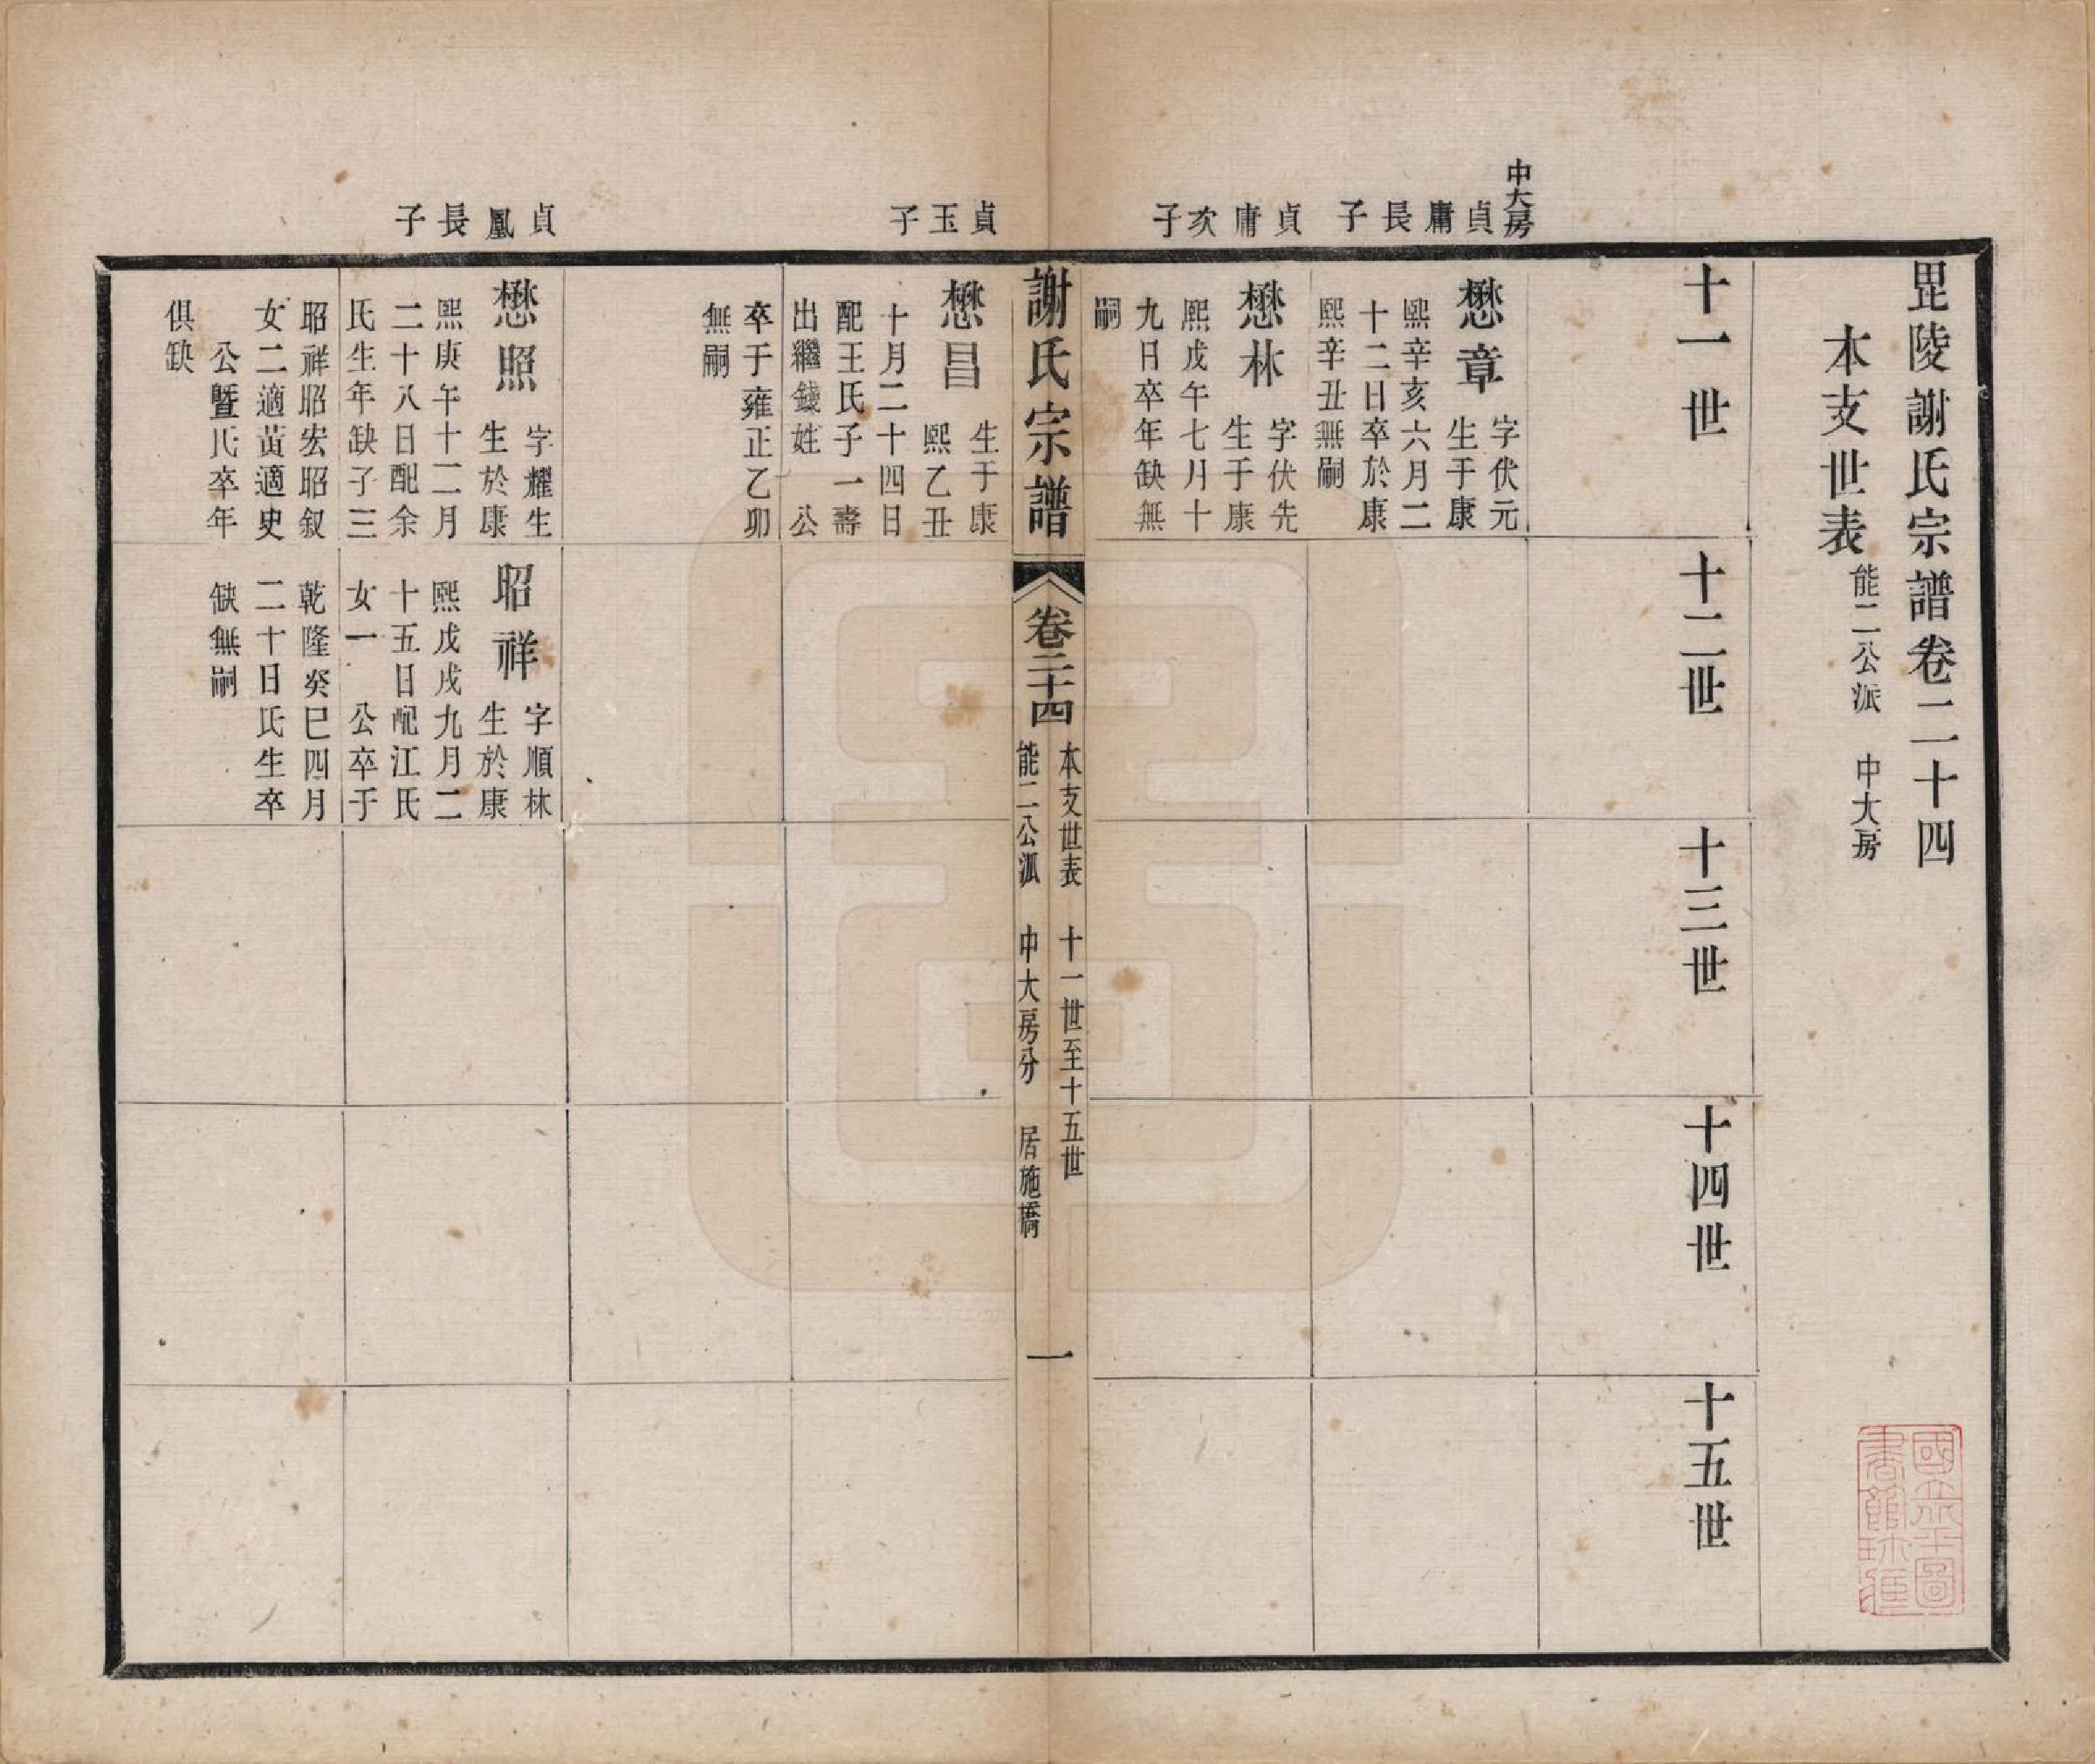 毘陵謝氏宗譜卷二十四
本支世表 能二公派 中大房
十一世
十二世
十三世
十四世
十五世
中大房
貞庸長子
懋章 字伏元
生于康
熙辛亥六月二
十二日卒於康
熙辛丑無嗣
貞庸次子
懋林 字伏先
生于康
熙戊午七月十
九日卒年缺無
嗣
謝氏宗譜 卷二十四 本支世表 十一世至十五世
能二公派 中大房分 居施橋
一
貞玉子
懋昌 生于康
熙乙丑
十月二十四日
配王氏子一壽
出繼錢姓 公
卒于雍正乙卯
無嗣
貞鳳長子
懋照 字耀生
生於康
熙庚午十二月
二十八日配余
氏生年缺子三
昭祥昭宏昭叙
女二適黃適史
公暨氏卒年
俱缺
昭祥 字順林
生於康
熙戊戌九月二
十五日配江氏
女一 公卒于
乾隆癸巳四月
二十日氏生卒
缺無嗣
國立北平圖
書館珍藏